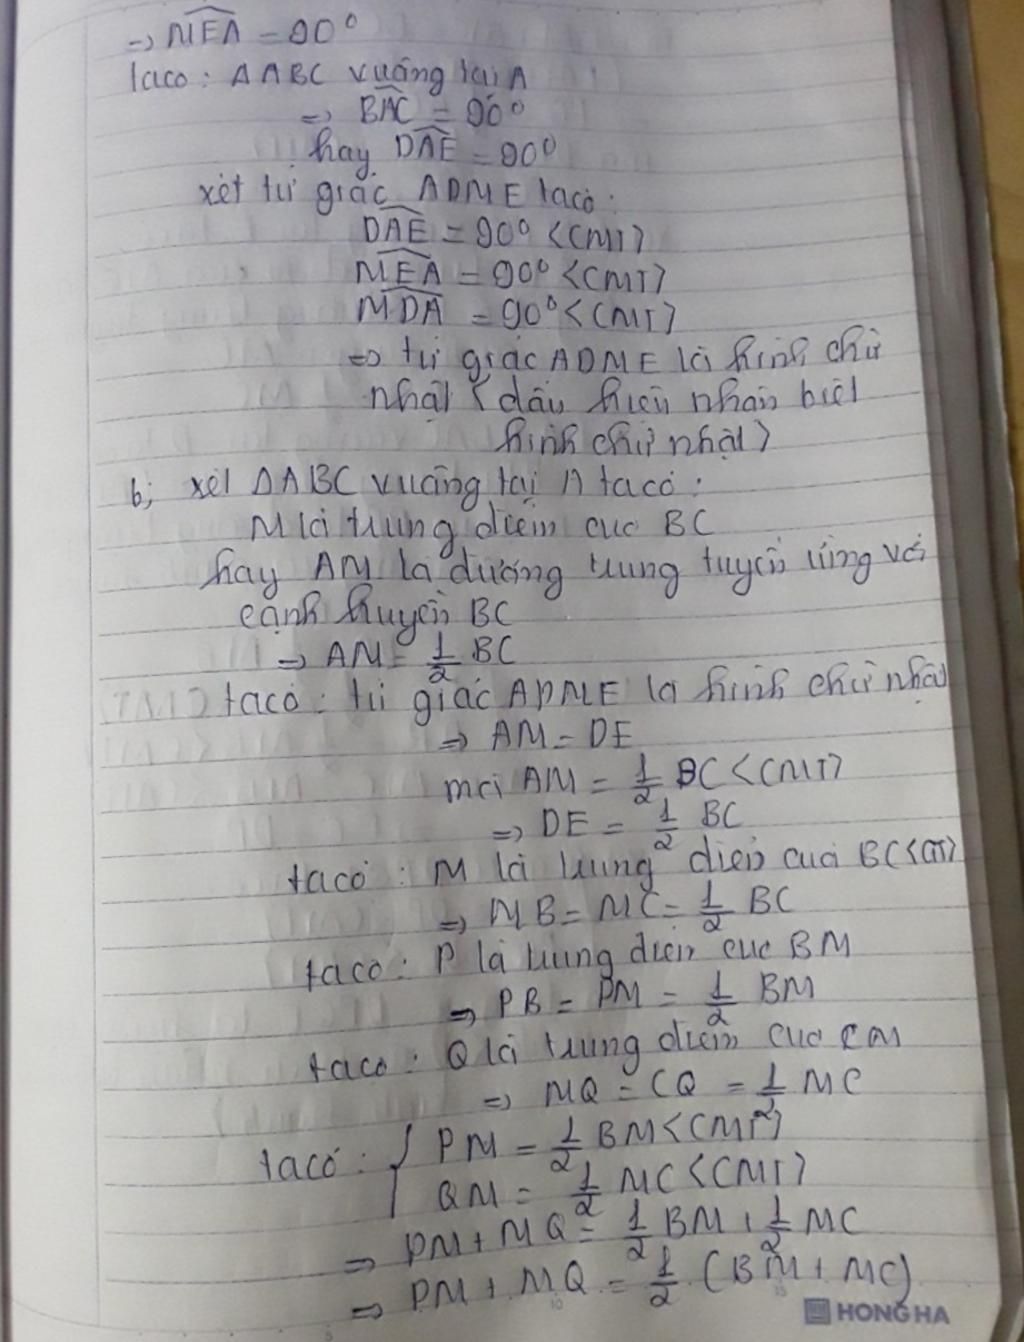 => MEA = 90°
taco: ΔABC vuông tại A
=> BAC = 90°
hay DAE = 90°
xét tứ giác ADME taco:
DAE = 90° <CMT>
MEA = 90° <CMT>
MDA = 90° <CMT>
=> tứ giác ADME là hình chữ
nhật < dấu hiệu nhận biết
hình chữ nhật >
b; xét ΔABC vuông tại A tacó:
M là trung điểm của BC
hay AM là đường trung tuyến ứng với
cạnh huyền BC
=> AM = 1/2 BC
tacó: tứ giác ADME là hình chữ nhật
=> AM = DE
mà AM = 1/2 BC <CMT>
=> DE = 1/2 BC
tacó: M là trung điểm của BC <GT>
=> MB = MC = 1/2 BC
tacó: P là trung điểm của BM
=> PB = PM = 1/2 BM
tacó: Q là trung điểm của CM
=> MQ = CQ = 1/2 MC
tacó: { PM = 1/2 BM <CMT>
QM = 1/2 MC <CMT>
=> PM + MQ = 1/2 BM + 1/2 MC
=> PM + MQ = 1/2 (BM + MC)
HONG HA